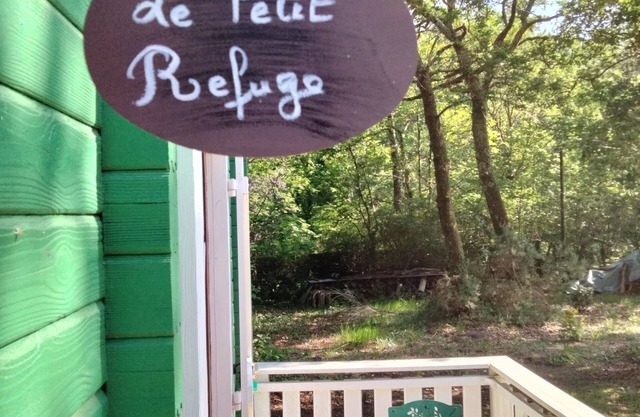 Le Petit
Refuge